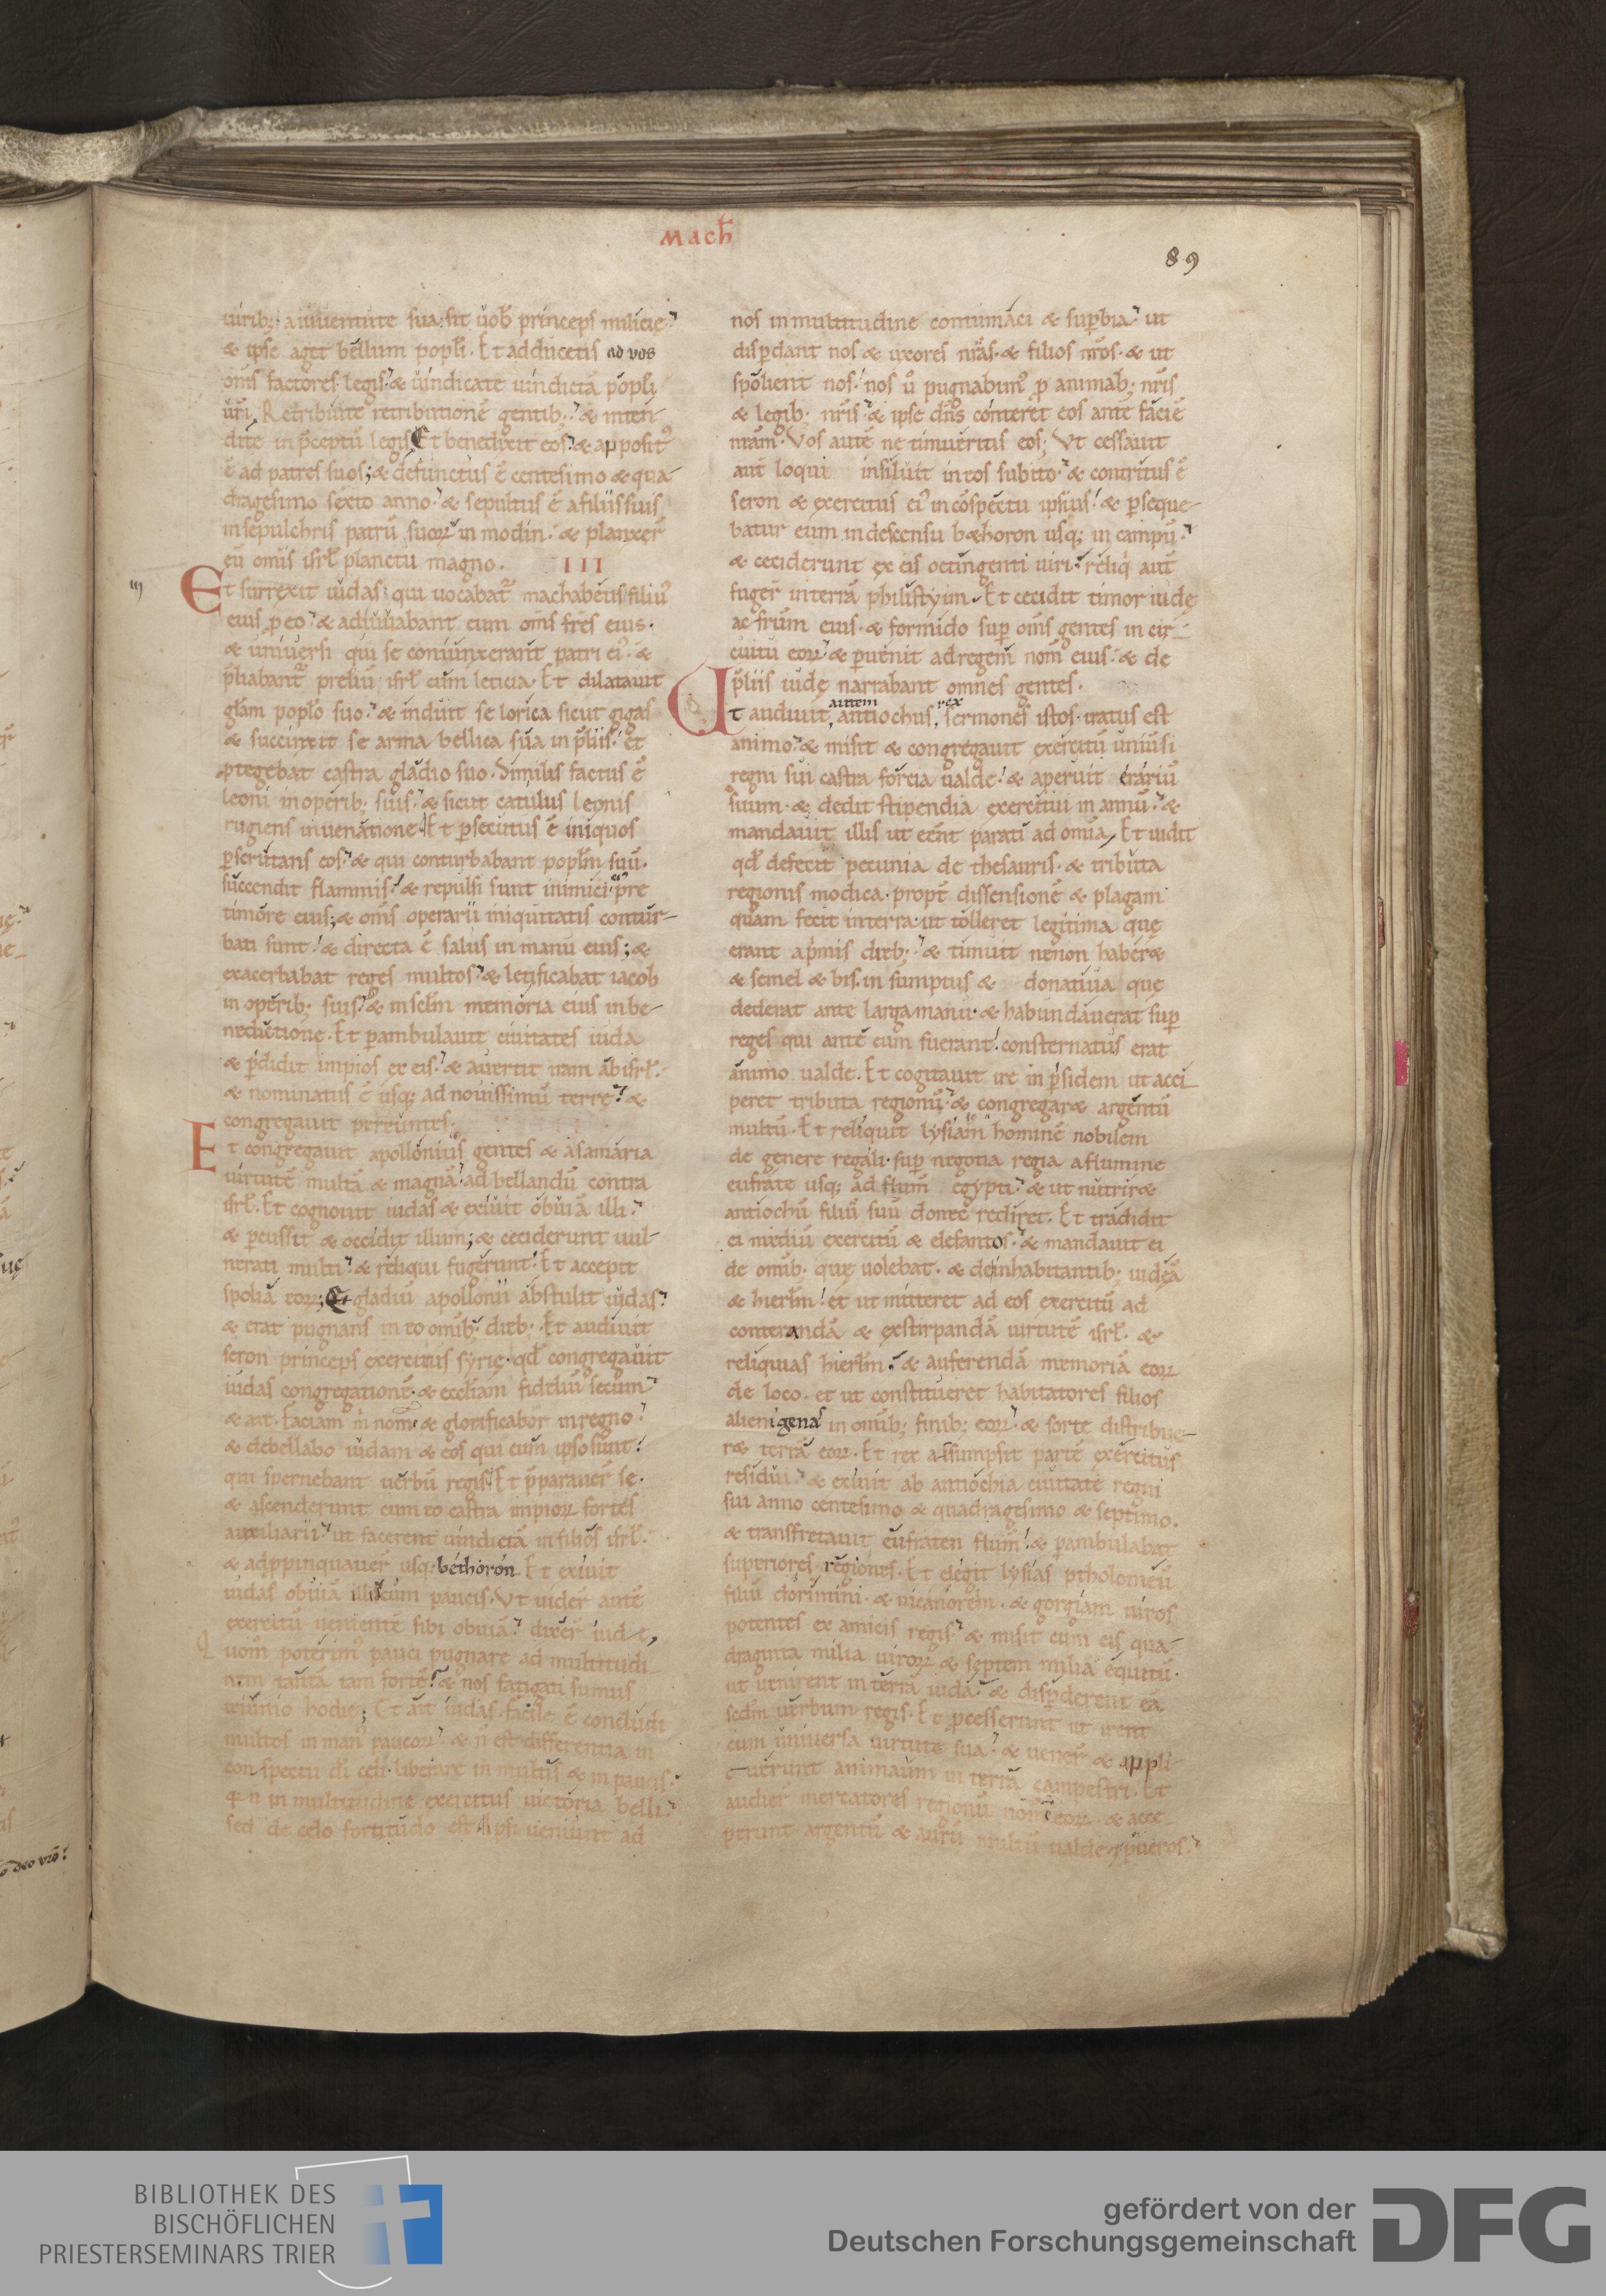 Mach̄
89
uirib; a iuuentute sua. sit uob̄ princeps milicię.
& ipse aget bellum popl̄i. Et adducetis ad vos
om̄s factores legis. & uindicate uindictā popl̄i
ur̄i. Retribuite retributionē gentib; & inten
dite in p̄ceptū legis Et benedixit eos. & apposit᾽
ē ad patres suos; & defunctus ē centesimo & qua
dragesimo sexto anno. & sepultus ē a filiis suis
in sepulchris patrū suoꝝ in modin. & planxer̄
eū om̄is isrl̄ planctu magno. III
iij
Et surrexit iudas qui uocabat᾽ machabeus filiu᾽
eius p eo. & adiuuabant eum om̄s fr̄es eius.
& uniuersi qui se coniunxerant patri ei᾽. &
p̄liabant᾽ preliū isrl̄ cum leticia. Et dilatauit
gl̄am popl̄o suo. & induit se lorica sicut gigas
& succinxit se arma bellica sua in p̄liis. et
ptegebat castra gladio suo. Similis factus ē
leoni in operib; suis. & sicut catulus leonis
rugiens in uenatione. Et psecutus ē iniquos
pscrutans eos. & qui conturbabant popl̄m suū.
succendit flammis. & repulsi sunt inimici ei᾽ pre
timore eius; & om̄s operarii iniquitatis contur-
bati sunt. & directa ē salus in manu eius; &
exacerbabat reges multos. & letificabat iacob
in operib; suis. & in scl̄m memoria eius in be-
nedictione. Et pambulauit ciuitates iuda
& pdidit impios ex eis. & auertit iram ab isrl̄.
& nominatus ē usq; ad nouissimū terrę. &
congregauit pereuntes.
Et congregauit apollonius gentes & a samaria
uirtutē multā & magnā. ad bellandū contra
isrl̄. Et cognouit iudas & exiuit obuiā illi.
& pcussit & occidit illum; & ceciderunt uul-
nerati multi. & reliqui fugerunt. Et accepit
spolia eoꝝ; Et gladiū apollonii abstulit iudas.
& erat pugnans in eo omīb; dieb;. Et audiuit
seron princeps exercitus syrię. qd̄ congregauit
iudas congregationē. & eccl̄iam fideliū secum
& ait. Faciam m̄ nom̄. & glorificabor in regno.
& debellabo iudam & eos qui cum ipso sunt.
qui spernebant uerbū regis. Et p̄parauer̄ se.
& ascenderunt cum eo castra impioꝝ fortes
auxiliarii. ut facerent uindictā in filios isrl̄.
& adppinquauer̄ usq; bethoron. Et exiuit
iudas obuiā illi cum paucis. Vt uider̄ autē
exercitū uenientē sibi obuiā. dixer̄ iudę,
Quom̄ poterim᾽ pauci pugnare ad multitudi
nem tantā tam fortē. & nos fatigati sumus
ieiunio hodie; Et ait iudas. facile ē concludi
multos in man᾽ paucoꝝ. & n̄ est differentia in
conspectu dī celi. liberare in multis & in paucis.
qn̄ in multitudine exercitus uictoria belli.
sed de celo fortitudo est. Ipsi ueniunt ad
nos in multitudine contumaci & supbia. ut
dispdant nos & uxores nr̄as. & filios nr̄os. & ut
spolient nos. nos u᾽ pugnabim᾽ p animab; nr̄is
& legib; nr̄is. & ipse dn̄s conteret eos ante faciē
nr̄am. Vos autē ne timueritis eos; Vt cessauit
aut̄ loqui insiluit in eos subito. & contritus ē
seron & exercitus ei᾽ in cōspectu ipsius. & pseque-
batur eum in descensu bethoron usq; in campū.
& ceciderunt ex eis octingenti uiri. reliq̇ aut̄
fuger̄ in terrā philistyim. Et cecidit timor iudę
ac fr̄um eius. & formido sup om̄s gentes in cir-
cuitu eoꝝ. & puenit ad regem nom̄ eius. & de
p̄liis iudę narrabant omnes gentes.
Vt audiuit, autem antiochus, rex sermones istos. iratus est
animo. & misit & congregauit exercitū uniu᾽si
regni sui castra forcia ualde. & aperuit erariū
suum. & dedit stipendia exercitui in annū. &
mandauit illis ut eēnt parati ad omīa. Et uidit
qd̄ defecit pecunia de thesauris. & tributa
regionis modica. propt̄ dissensionē & plagam
quam fecit in terra. ut tolleret legitima quę
erant a p̄mis dieb;. & timuit ne non haber&
& semel & bis. in sumptus & donatiua quę
dederat ante larga manu. & habundauerat sup
reges qui ante eum fuerant. consternatus erat
animo ualde. Et cogitauit ire in psidem ut acci-
peret tributa regionū. & congregar& argentū
multū. Et reliquit lysiam hominē nobilem
de genere regali. sup negotia regia a flumine
eufrate usq; ad flum̄ egypti. & ut nutrir&
antiochū filiū suū donec rediret. Et tradidit
ei mediū exercitū & elefantos. & mandauit ei
de omīb; quę uolebat. & de inhabitantib; iudeā
& hierl̄m. et ut mitteret ad eos exercitū ad
conterendā & exstirpandā uirtutē isrl̄. &
reliquias hierl̄m. & auferendā memoriā eoꝝ
de loco. et ut constitueret habitatores filios
alienigenas in omīb; finib; eoꝝ. & sorte distribue-
r& terrā eoꝝ. Et rex assumpsit partē exercitus
residui. & exiuit ab antiochia ciuitate regni
sui anno centesimo & quadragesimo & septimo.
& transfretauit eufraten flum̄. & pambulabat
superiores regiones. Et elegit lysias ptholomeū
filiū dorimini. & nicanorem. & gorgiam uiros
potentes ex amicis regis. & misit cum eis qua-
draginta milia uiroꝝ & septem milia equitū.
ut uenirent in terrā iuda. & dispderent eā
secdm̄ uerbum regis. Et pcesserunt ut irent
cum uniuersa uirtute sua. & uener̄ & appli-
cuerunt animaum in terra campestri. Et
audier̄ mercatores regionū nom̄ eoꝝ. & acce-
perunt argentū & aurū multū ualde. & pueros.
BIBLIOTHEK DES
BISCHÖFLICHEN
PRIESTERSEMINARS TRIER
gefördert von der
Deutschen Forschungsgemeinschaft
DFG